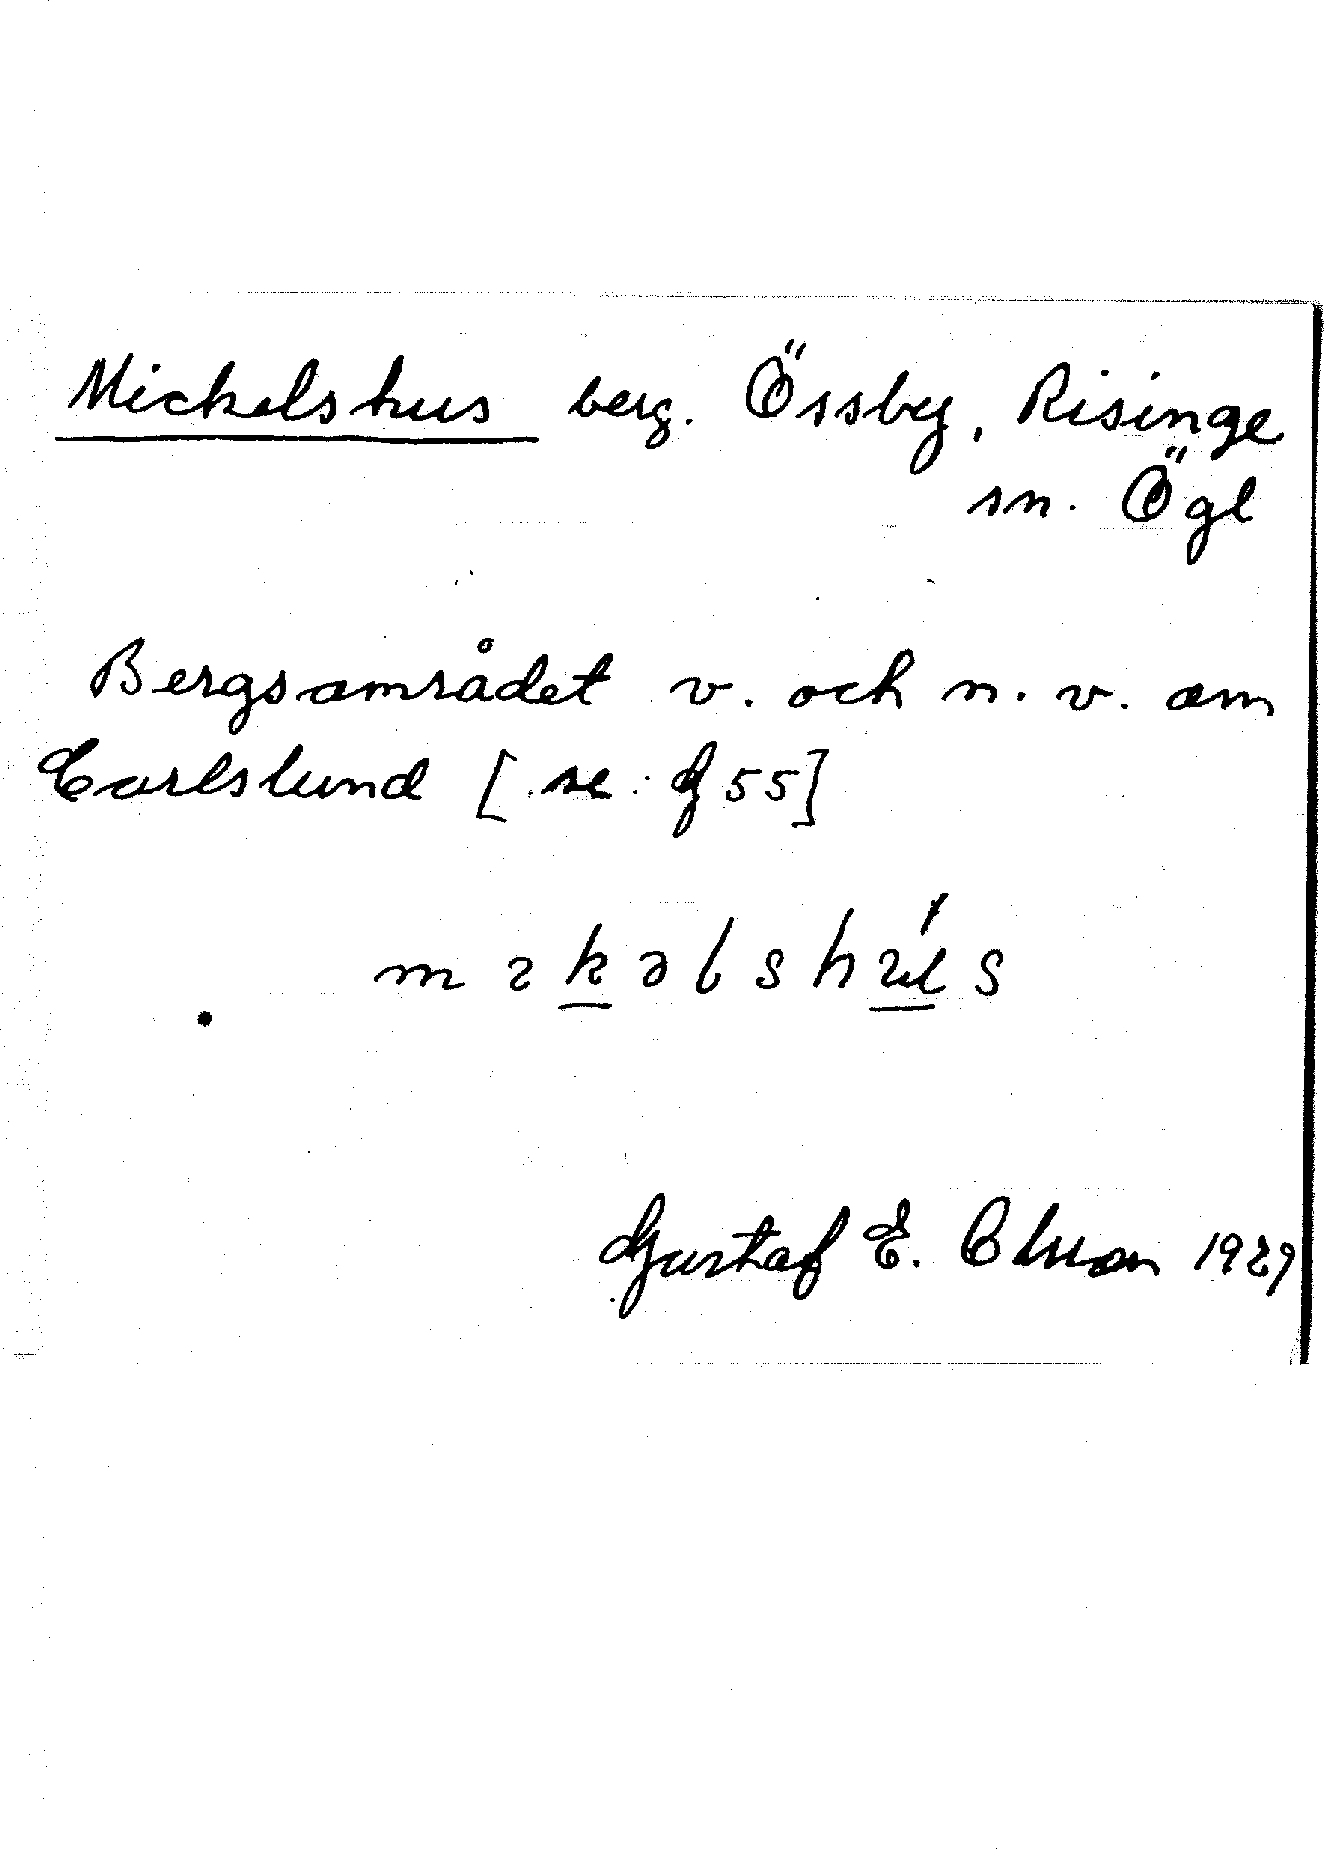 Mickelshus berg. Össby, Risinge
sn. Ögl
Bergsområdet v. och n.v. om
Carlslund [se g 55]
Gustaf E. Olsson 1929